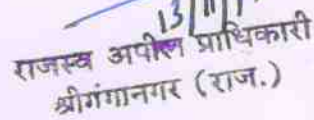 13/11/
राजस्व अपील प्राधिकारी
श्रीगंगानगर (राज.)